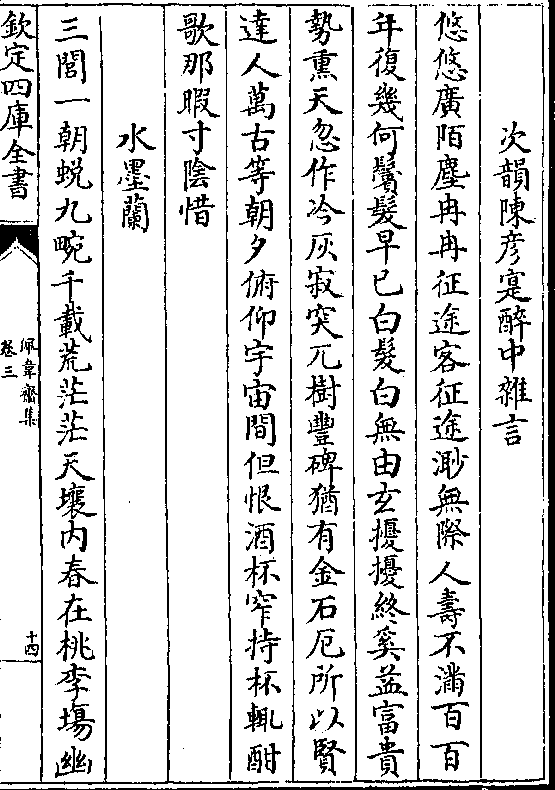 次韻陳彦寔醉中雜言
悠悠廣陌塵冉冉征途客征途渺無際人壽不滿百百
年復幾何鬢髮早已白髮白無由玄擾擾終奚益富貴
勢熏天忽作冷灰寂突兀樹豐碑猶有金石厄所以賢
達人萬古等朝夕俯仰宇宙間但恨酒杯窄持杯輒酣
歌那暇寸陰惜
水墨蘭
三閭一朝蛻九畹千載荒茫茫天壤内春在桃李塲幽
欽定四庫全書
佩韋齋集
卷三
十四